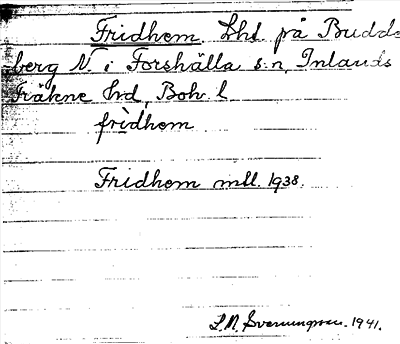 Fridhem Lht på Budda
berg N i Forshälla s:n, Inlands
Fräkne hrd, Boh. l
frìdhem
Fridhem mtl. 1938.
1941.